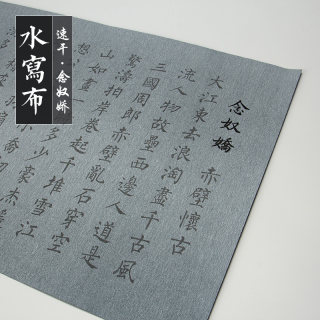 水寫布
速干·念奴娇
念奴嬌 赤壁懷古
大江東去浪淘盡千古風
流人物故壘西邊人道是
三國周郎赤壁亂石穿空
驚濤拍岸卷起千堆雪江
山如畫一時多少豪